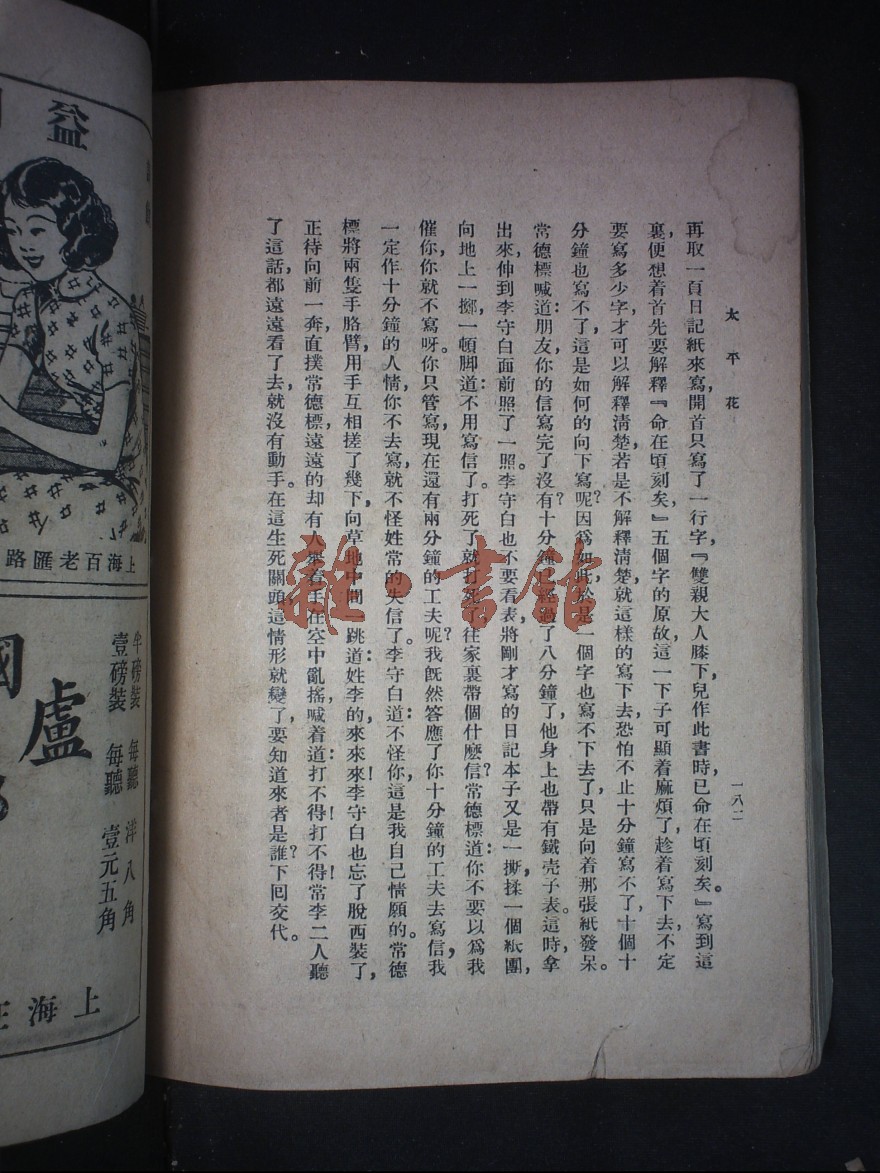 太平花
一八二
再取一頁日記紙來寫，開首只寫了一行字，『雙親大人膝下，兒作此書時，已命在頃刻矣。』寫到這
裏，便想着首先要解釋『命在頃刻矣』五個字的原故，這一下子可顯着麻煩了，趁着寫下去，不定
要寫多少字，才可以解釋淸楚，若是不解釋淸楚，就這樣的寫下去，恐怕不止十分鐘寫不了，十個十
分鐘也寫不了，這是如何的向下寫呢？因爲如此，於是一個字也寫不下去了，只是向着那張紙發呆。
常德標喊道：朋友，你的信寫完了沒有？十分鐘已經過了八分鐘了，他身上也帶有鐵壳子表。這時，拿
出來，伸到李守白面前照了一照。李守白也不要看表，將剛才寫的日記本子又是一撕，揉一個紙團，
向地上一擲，一頓脚道：不用寫信了。打死了就打死了，往家裏帶個什麽信？常德標道：你不要以爲我
催你，你就不寫呀。你只管寫，現在還有兩分鐘的工夫呢？我旣然答應了你十分鐘的工夫去寫信，我
一定作十分鐘的人情，你不去寫，就不怪姓常的失信了。李守白道：不怪你，這是我自己情願的。常德
標將兩隻手胳臂，用手互相搓了幾下，向草地中間一跳道：姓李的，來來來！李守白也忘了脫西裝了，
正待向前一奔，直撲常德標，遠遠的却有人舉着手在空中亂搖，喊着道：打不得！打不得！常李二人聽
了這話，都遠遠看了去，就沒有動手。在這生死關頭，這情形就變了，要知道來者是誰？下回交代。
雜·書館
益
上海百老匯路
國
盧
半磅裝 每聽 洋八角
壹磅裝 每聽 壹元五角
上海